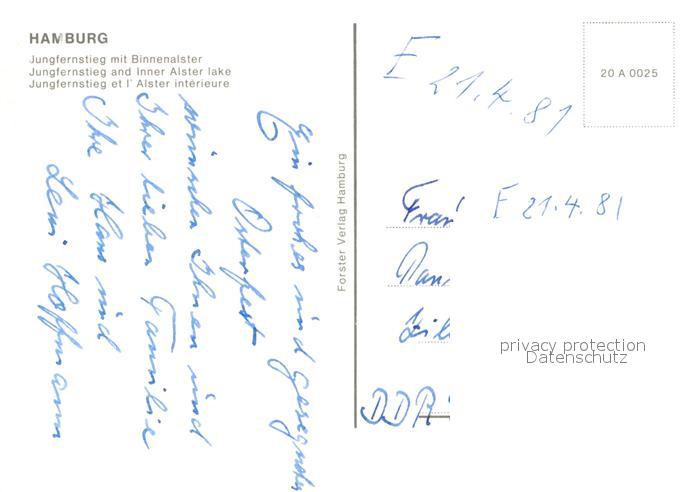 HAMBURG
Jungfernstieg mit Binnenalster
Jungfernstieg and Inner Alster lake
Jungfernstieg et l' Alster intérieure
Ein frohes und gesegnetes
Osterfest
wünschen Ihnen und
Ihrer lieben Familie
Ihre Hans und
Leni Hoffmann
Forster Verlag Hamburg
E 21.4.81
20 A 0025
E 21.4.81
DDR
privacy protection
Datenschutz